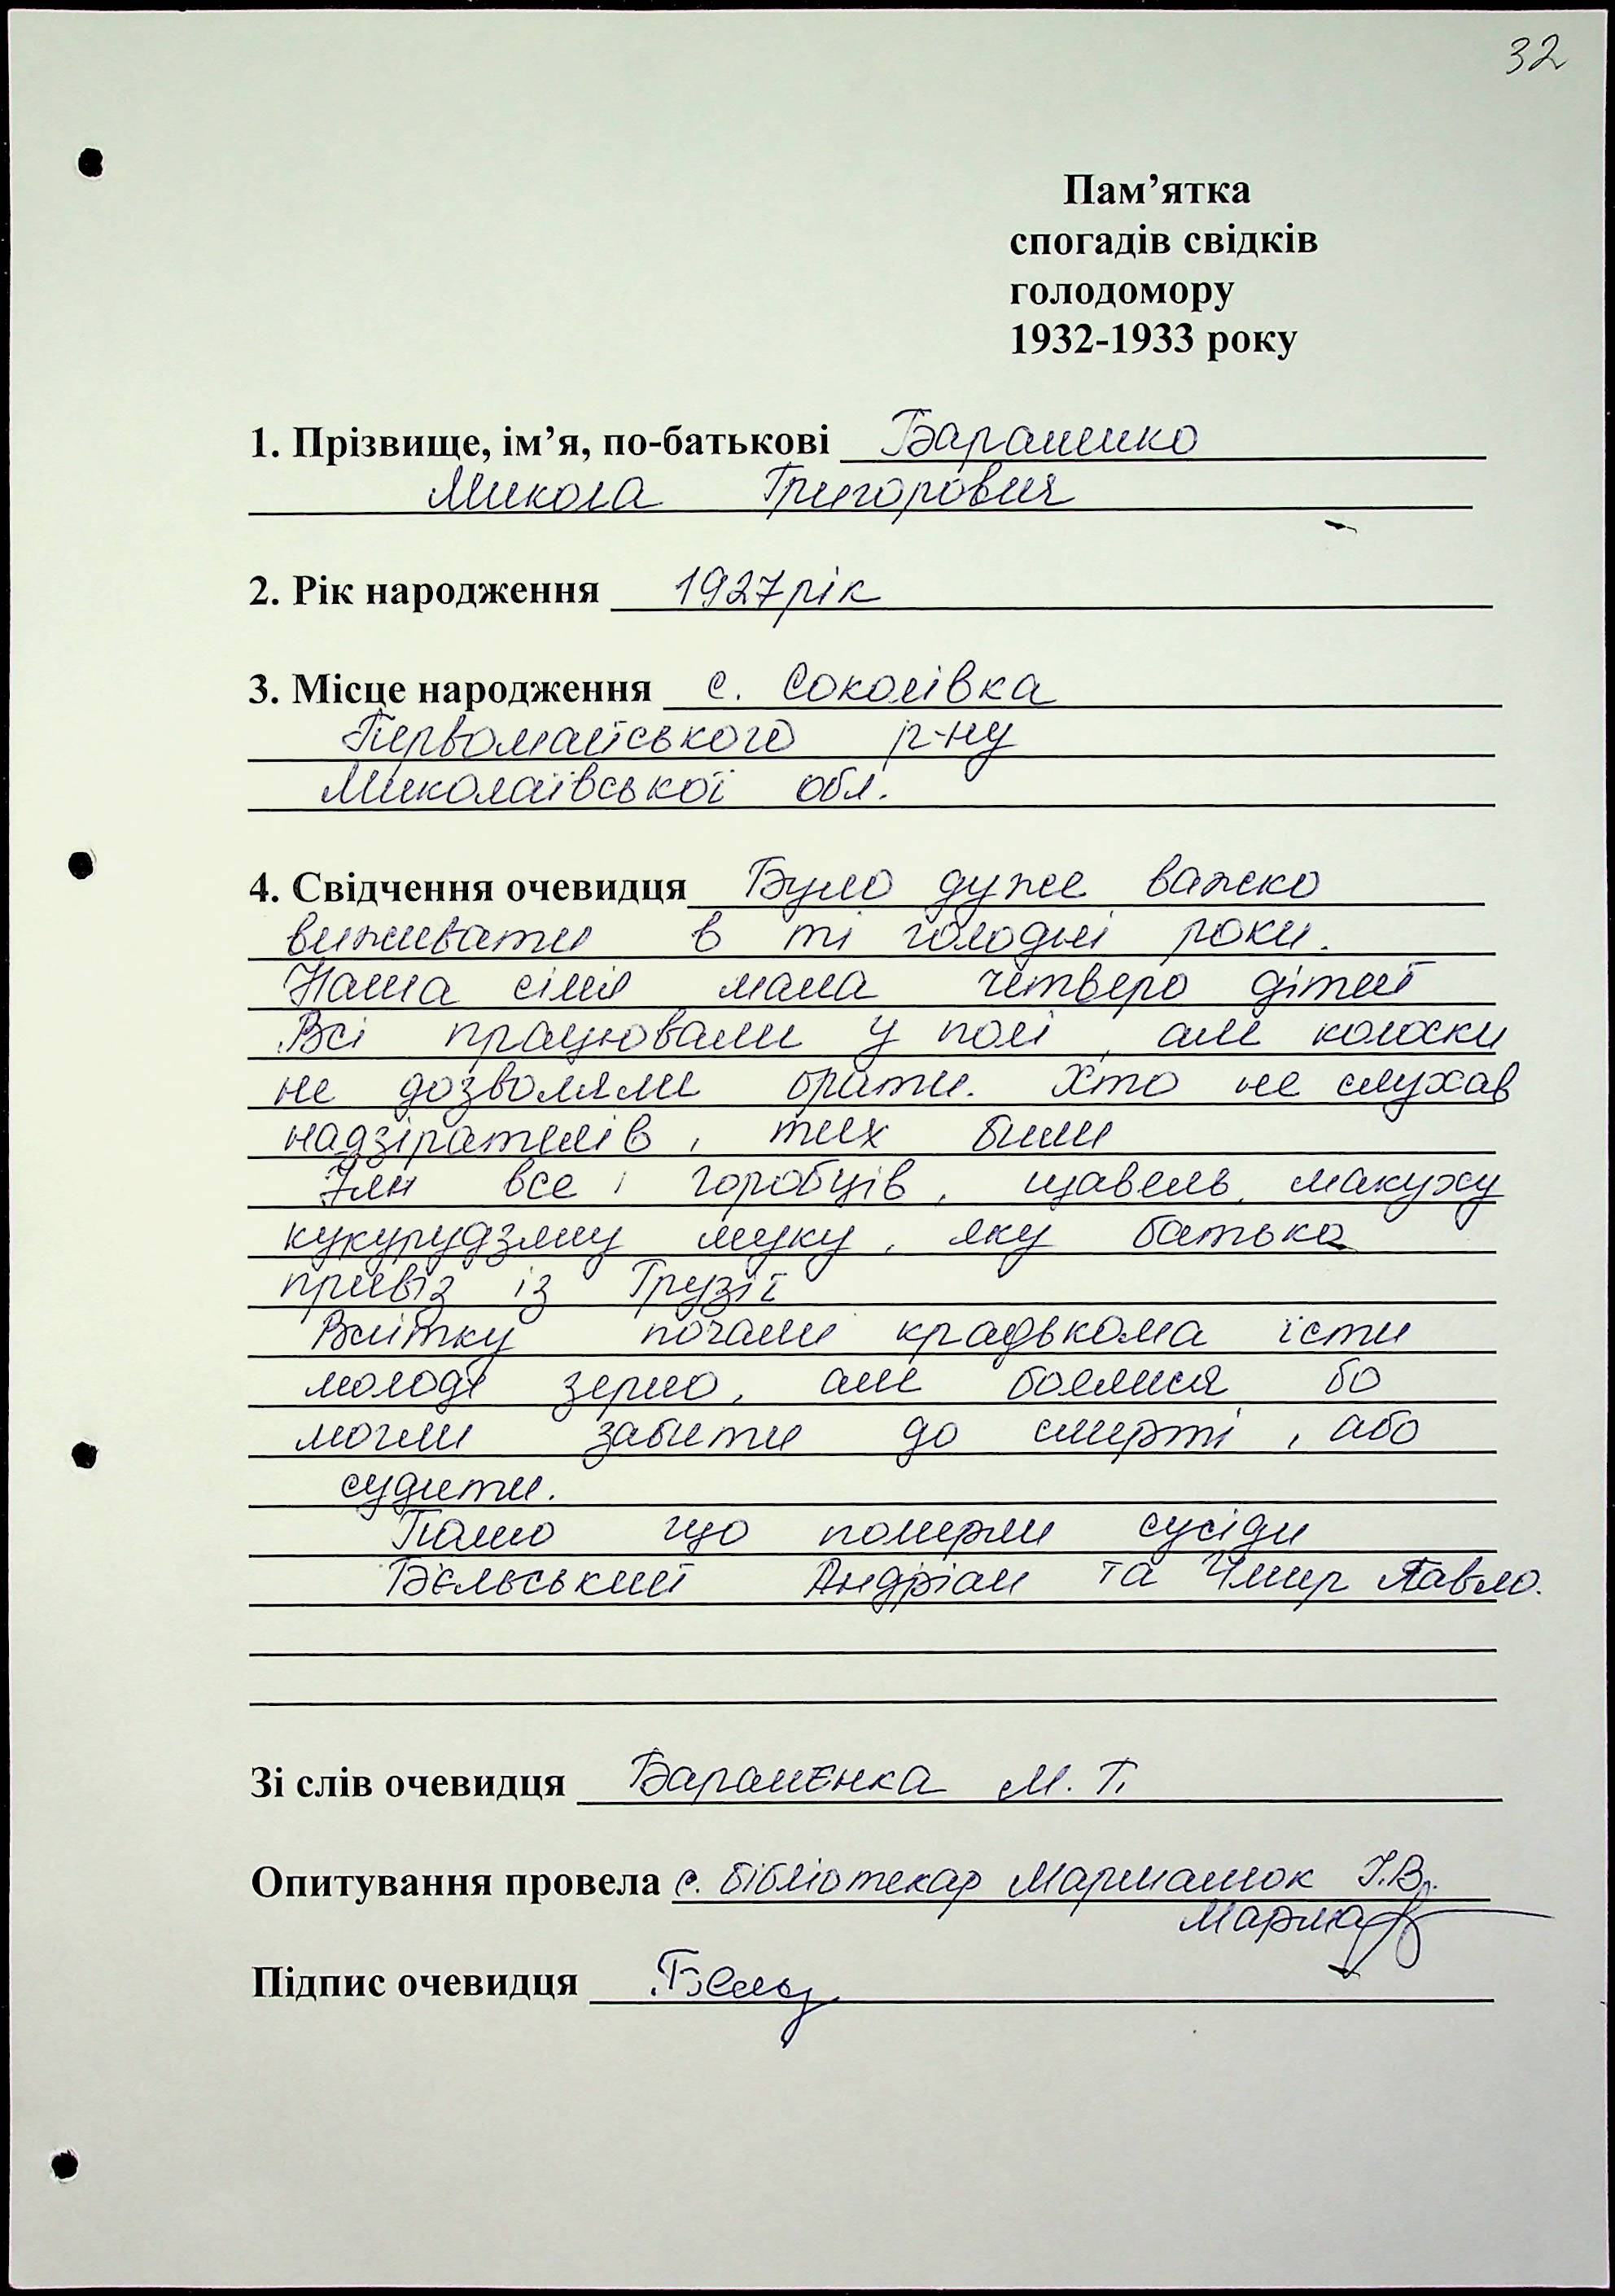 32
Пам’ятка
спогадів свідків
голодомору
1932-1933 року
1. Прізвище, ім’я, по-батькові Бараненко
Микола Григорович
2. Рік народження 1927 рік
3. Місце народження с. Соколівка
Первомайського р-ну
Миколаївської обл.
4. Свідчення очевидця Було дуже важко
виживати в ті голодні роки.
Наша сімя мала четверо дітей
Всі працювали у полі, але колоски
не дозволяли брати. Хто не слухав
надзірателів, тих били
Їли все і горобців, щавель, макуху
кукурудзяну муку, яку батько
привіз із Грузії
Влітку почали крадькома їсти
молоде зерно, але боялися бо
могли забити до смерті, або
судити.
Памю що померли сусіди
Бєльський Андріан та Чмир Павло.
Зі слів очевидця М. Г.
Опитування провела с. бібліотекар І.В.
Підпис очевидця